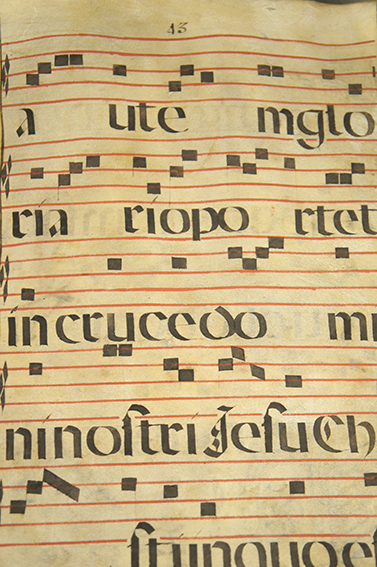 13
a ute mglo
ria riopo rtet
incrucedo mi
ninoſtri Jeſu Ch
ſtiinquoeſ